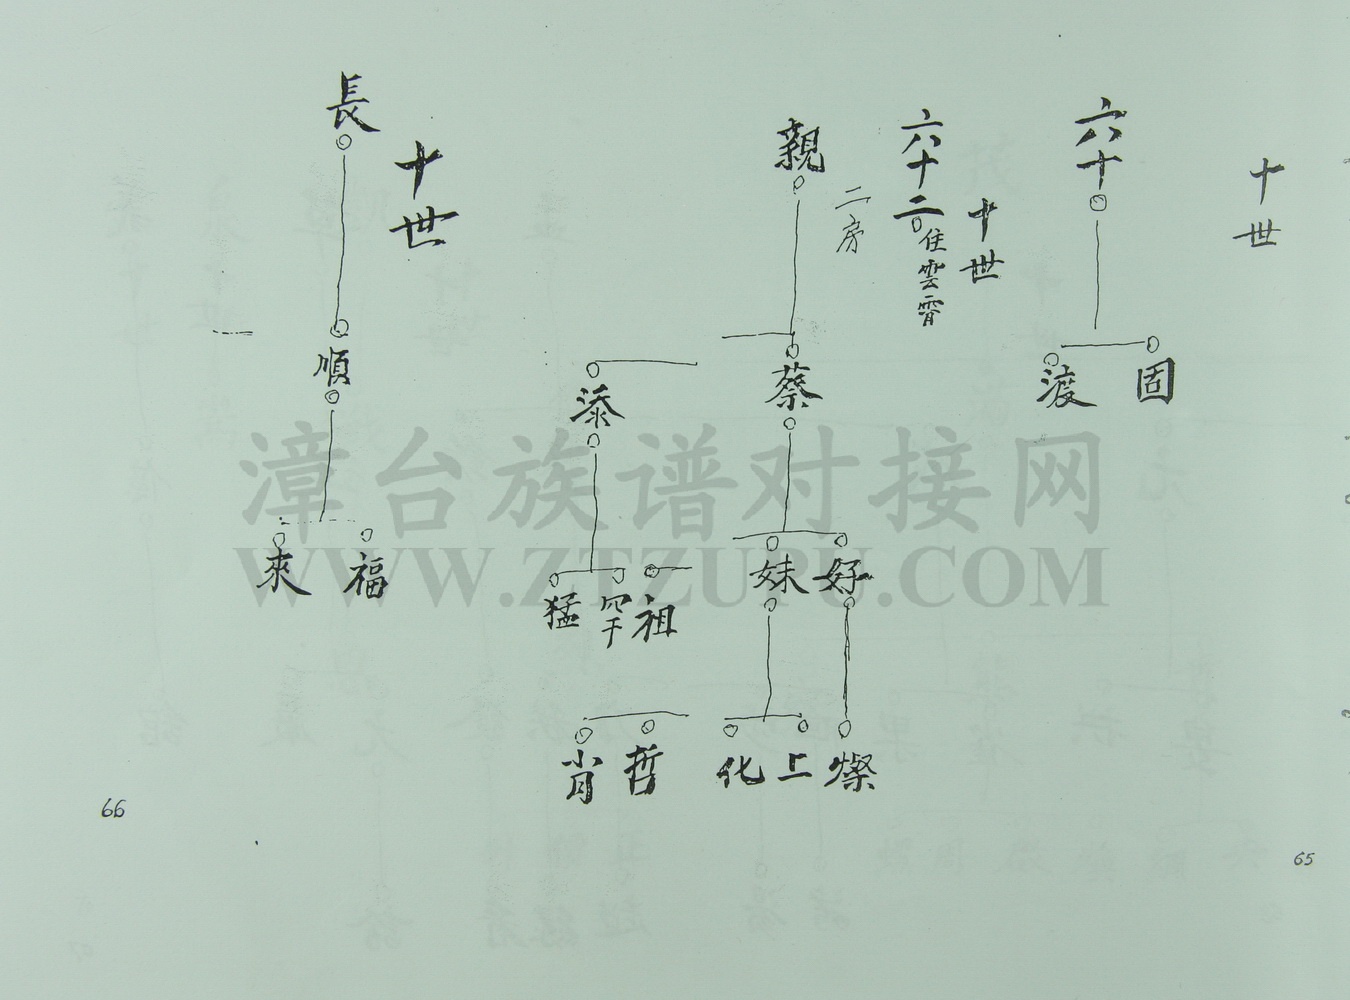 十世
六十
固
渡
十世
六十二
住雲霄
二房
親
蔡
好
妹
燦
上
化
哲
肖
添
祖
罕
猛
十世
長
順
福
來
65
66
漳台族谱对接网
WWW.ZTZUPU.COM